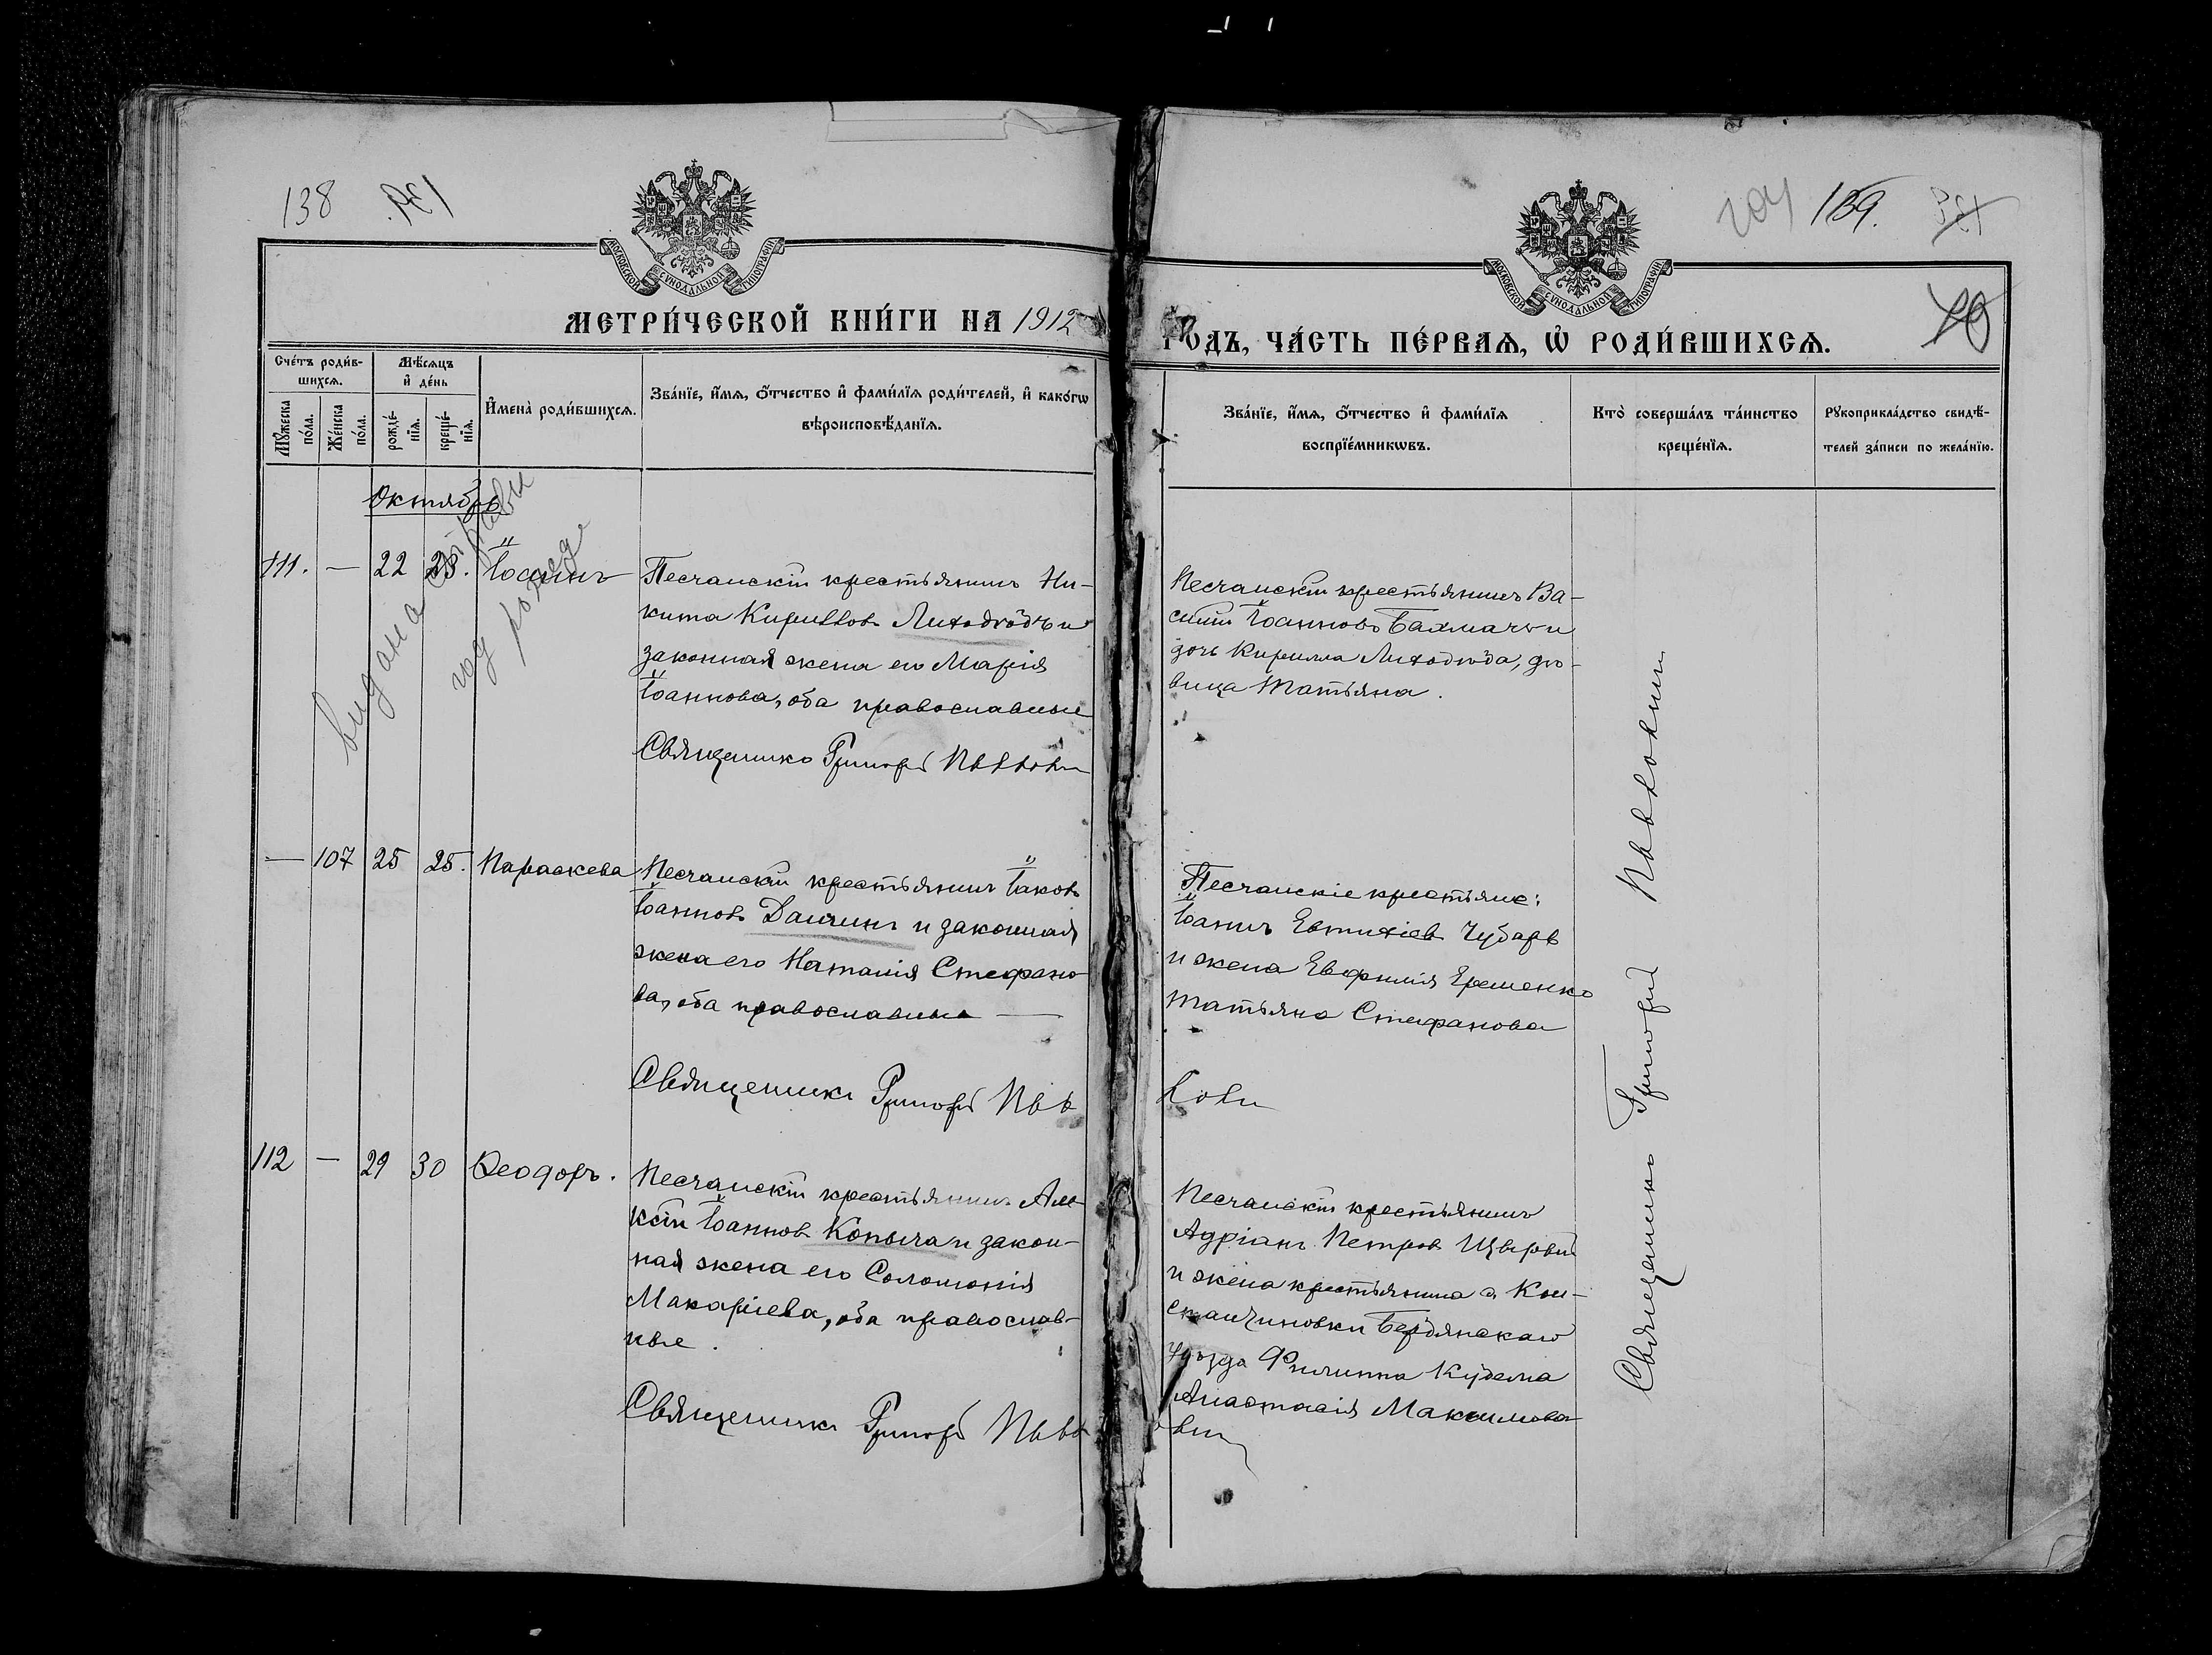 138
204 139.
МОСКОВСКОЙ СУНОДАЛЬНОЙ ТИПОГРАФІИ
МОСКОВСКОЙ СУНОДАЛЬНОЙ ТИПОГРАФІИ
МЕТРИ́ЧЕСКОЙ КНИ́ГИ НА 1912
ГОДЪ, ЧА́СТЬ ПЕ́РВАѦ, Ѡ҆ РОДИ́ВШИХСѦ.
Сче́тъ роди́в-
шихсѧ.
Мѣ́сѧцъ
и҆ де́нь
Мꙋ́жеска
по́ла.
Же́нска
по́ла.
рожде́-
нїѧ.
креще́-
нїѧ.
И҆мена̀ роди́вшихсѧ.
Зва́нїе, и҆́мѧ, ѻ҆́тчество и҆ фами́лїѧ роди́телей, и҆ како́гѡ
вѣроисповѣ́данїѧ.
Зва́нїе, и҆́мѧ, ѻ҆́тчество и҆ фами́лїѧ
воспрїе́мникѡвъ.
Кто̀ соверша́лъ та́инство
креще́нїѧ.
Рꙋкоприкла́дство свидѣ́-
телей за́писи по жела́нїю.
Октябрь
111. — 22 23. Іосифъ
Песчанскій крестьянинъ Ни-
кита Кирилловъ Лиходѣдъ и
законная жена его Марія
Іоаннова, оба православные
Священникъ Григорій
Песчанскій крестьянинъ Ва-
силій Іоанновъ Бахмачъ и
дочь Кирилла Лиходѣда, дѣ-
вица Татьяна.
видана
— 107 25 25. Параскева
Песчанскій крестьянинъ Іаковъ
Іоанновъ и законная
жена его Наталія Стефано-
ва, оба православные —
Священникъ Григорій
Песчанскіе крестьяне:
Іоаннъ Евтихіевъ Чубарь
и жена Евфимія Ерешенко
Татьяна Стефанова
112 — 29 30 Ѳеодоръ.
Песчанскій крестьянинъ Але-
ксѣй Іоанновъ Копыча и закон-
ная жена его Соломонія
Макаріева, оба православ-
ные.
Священникъ Григорій
Песчанскій крестьянинъ
Адріанъ Петровъ
и жена крестьянина с. Кон-
стантиновки Бердянскаго
уѣзда Филиппа
Анастасія Максимова
Священникъ Григорій